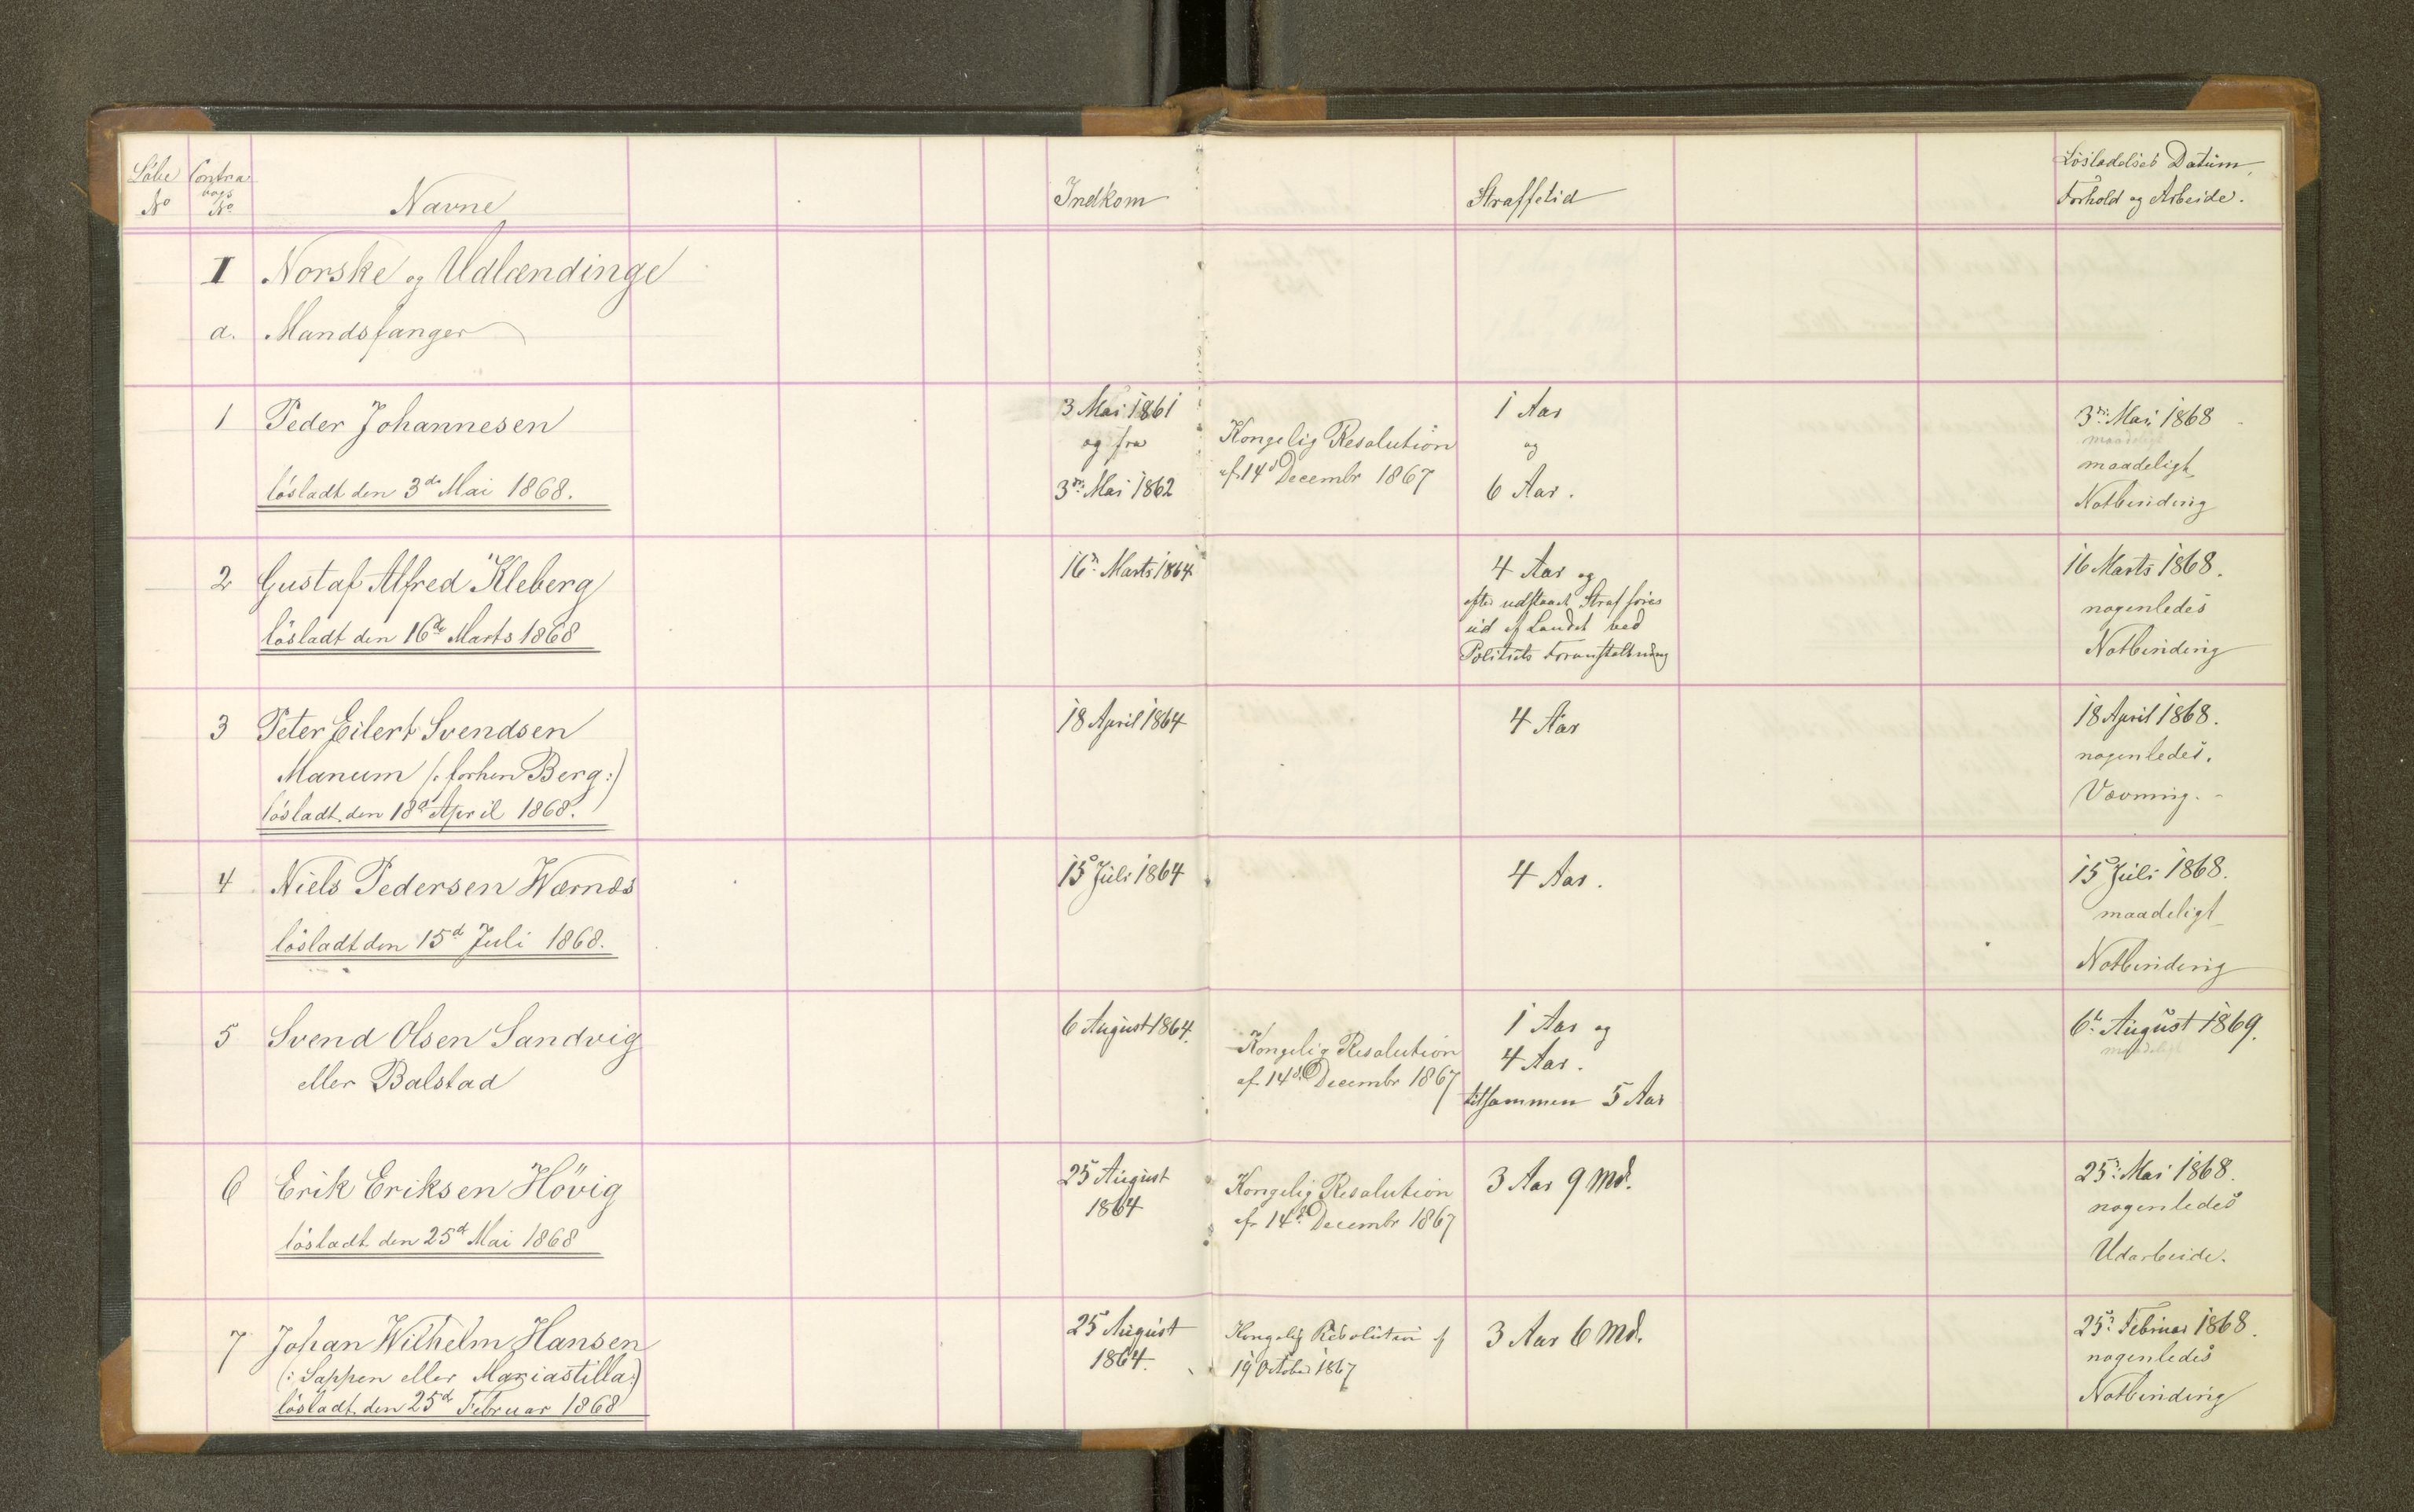 Löbe No
Contra bogs No
Navne
Indkom
Straffetid
Lösladelses Datum, Forhold og Arbeide.
I Norske og Udlændinge
a. Mandsfanger
1 Peder Johannesen
lösladt den 3de Mai 1868.
3 Mai 1861
og fra
3die Mai 1862
Kongelig Resolution
af 14d Decembr 1867
1 Aar
og
6 Aar.
3die Mai 1868
maadeligt
maadeligt
Notbinding
2 Gustaf Alfred Kleberg
lösladt den 16de Marts 1868
16de Marts 1864
4 Aar og
efter udstaaet Straf föres
ud af Landet ved
Politiets Foranstaltning
16 Marts 1868.
nogenledes
Notbinding
3 Peter Eilert Svendsen
Manum /: forhen Berg:/
lösladt den 18d April 1868.
18 April 1864
4 Aar
18 April 1868.
nogenledes.
Vævning.
4 Niels Pedersen Wærnæs
lösladt den 15d Juli 1868.
15 Juli 1864
4 Aar.
15 Juli 1868.
maadeligt
Notbinding
5 Svend Olsen Sandvig
eller Balstad
6 August 1864.
Kongelig Resolution
af 14d Decembr 1867
1 Aar og
4 Aar.
tilsammen 5 Aar
6te August 1869.
maadeligt
6 Erik Eriksen Hövig
lösladt den 25d Mai 1868
25 August
1864
Kongelig Resolution
af 14d Decembr 1867
3 Aar 9 Md.
25de Mai 1868.
nogenledes
Udarbeide.
7 Johan Wilhelm Hansen
(: Sappen eller Mariastilla:)
lösladt den 25d Februar 1868
25 August
1864.
Kongelig Resolution af
19 October 1867
3 Aar 6 Md.
25de Februar 1868.
nogenledes
Notbinding